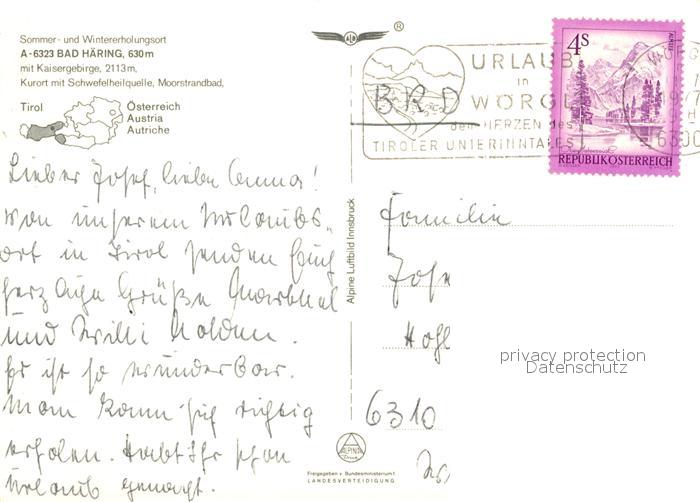 Sommer- und Wintererholungsort
A-6323 BAD HÄRING, 630 m
mit Kaisergebirge, 2113 m,
Kurort mit Schwefelheilquelle, Moorstrandbad,
Tirol
Österreich
Austria
Autriche
Lieber Josef, liebe Anna!
Von unserem Urlaubs-
ort in Tirol senden Euch
herzliche Grüße
und Willi Holden.
Es ist so wunderbar.
Man kann sich richtig
erholen. Habt Ihr schon
Urlaub gemacht.
Alpine Luftbild Innsbruck
AD
®
URLAUB
in
WÖRGL
dem HERZEN des
TIROLER UNTERINNTALES
BRD
4S
ALMSEE
REPUBLIK ÖSTERREICH
6300
Familie
Josef
6310
privacy protection
Datenschutz
ALPINE
Freigegeben v. Bundesministerium f.
LANDESVERTEIDIGUNG